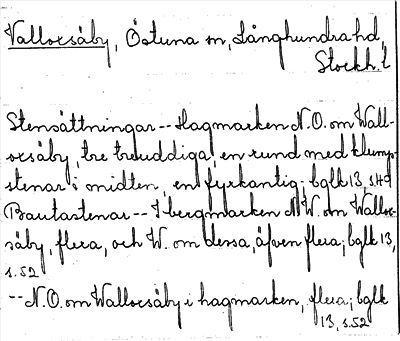 Valloxsåby, Östuna sn, Långhundra hd,
Stockh. l
Stensättningar -- Hagmarken N.O. om Wall-
oxsåby, tre treuddiga, en rund med klump-
stenar i midten, en fyrkantig; bglk 13, s.49
Bautastenar -- I bergmarken N.W. om Wallox-
såby, flera, och W. om dessa, äfven flera; bglk 13,
s. 52
-- N.O. om Walloxsåby i hagmarken, flera; bglk
13, s. 52